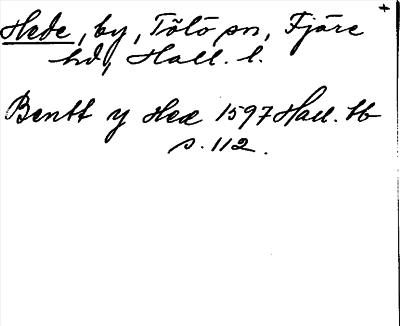 +
Hede, by, Tölö sn, Fjäre
hd, Hall. l.
Bentt y Hee 1597 Hall. tb
s. 112.